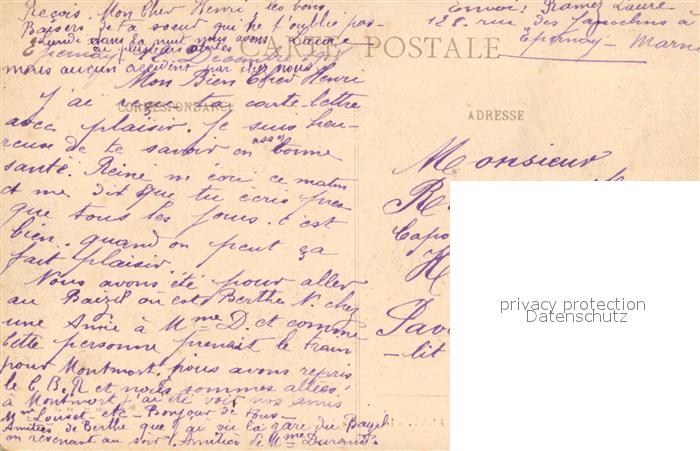 Reçois, Mon Cher Henri, les bons
Baisers de ta soeur qui ne t'oublie pas
Lundi dans la nuit nous avons
eu plusieurs alertes
Laure
mais aucun accident par chez nous
Epernay
Décembre
Envoi: Ramez Laure
128 rue des Jancelins à
Epernay - Marne
CARTE POSTALE
CORRESPONDANCE
ADRESSE
Mon Bien Cher Henri
J'ai reçu ta carte-lettre
avec plaisir. Je suis heu-
reuse de te savoir en assez bonne
santé. Reine m'écrit ce matin
et me dit que tu écris pres-
que tous les jours. c'est
bien. quand on peut ça
fait plaisir.
Nous avons été pour aller
au Baizil où est Berthe N. chez
une Amie à Mme D. et comme
cette personne prenait le train
pour Montmort. nous avons repris
le C.B.R et nous sommes allées
à Montmort j'ai été voir nos amis
Mr Louset - etc - Bonjour de tous -
Amitiés de Berthe que j'ai vu la gare du Bayzil
en revenant au soir. Amitiés de Mme Durand.
Monsieur
R
Capo
H
Pav
- lit
privacy protection
Datenschutz